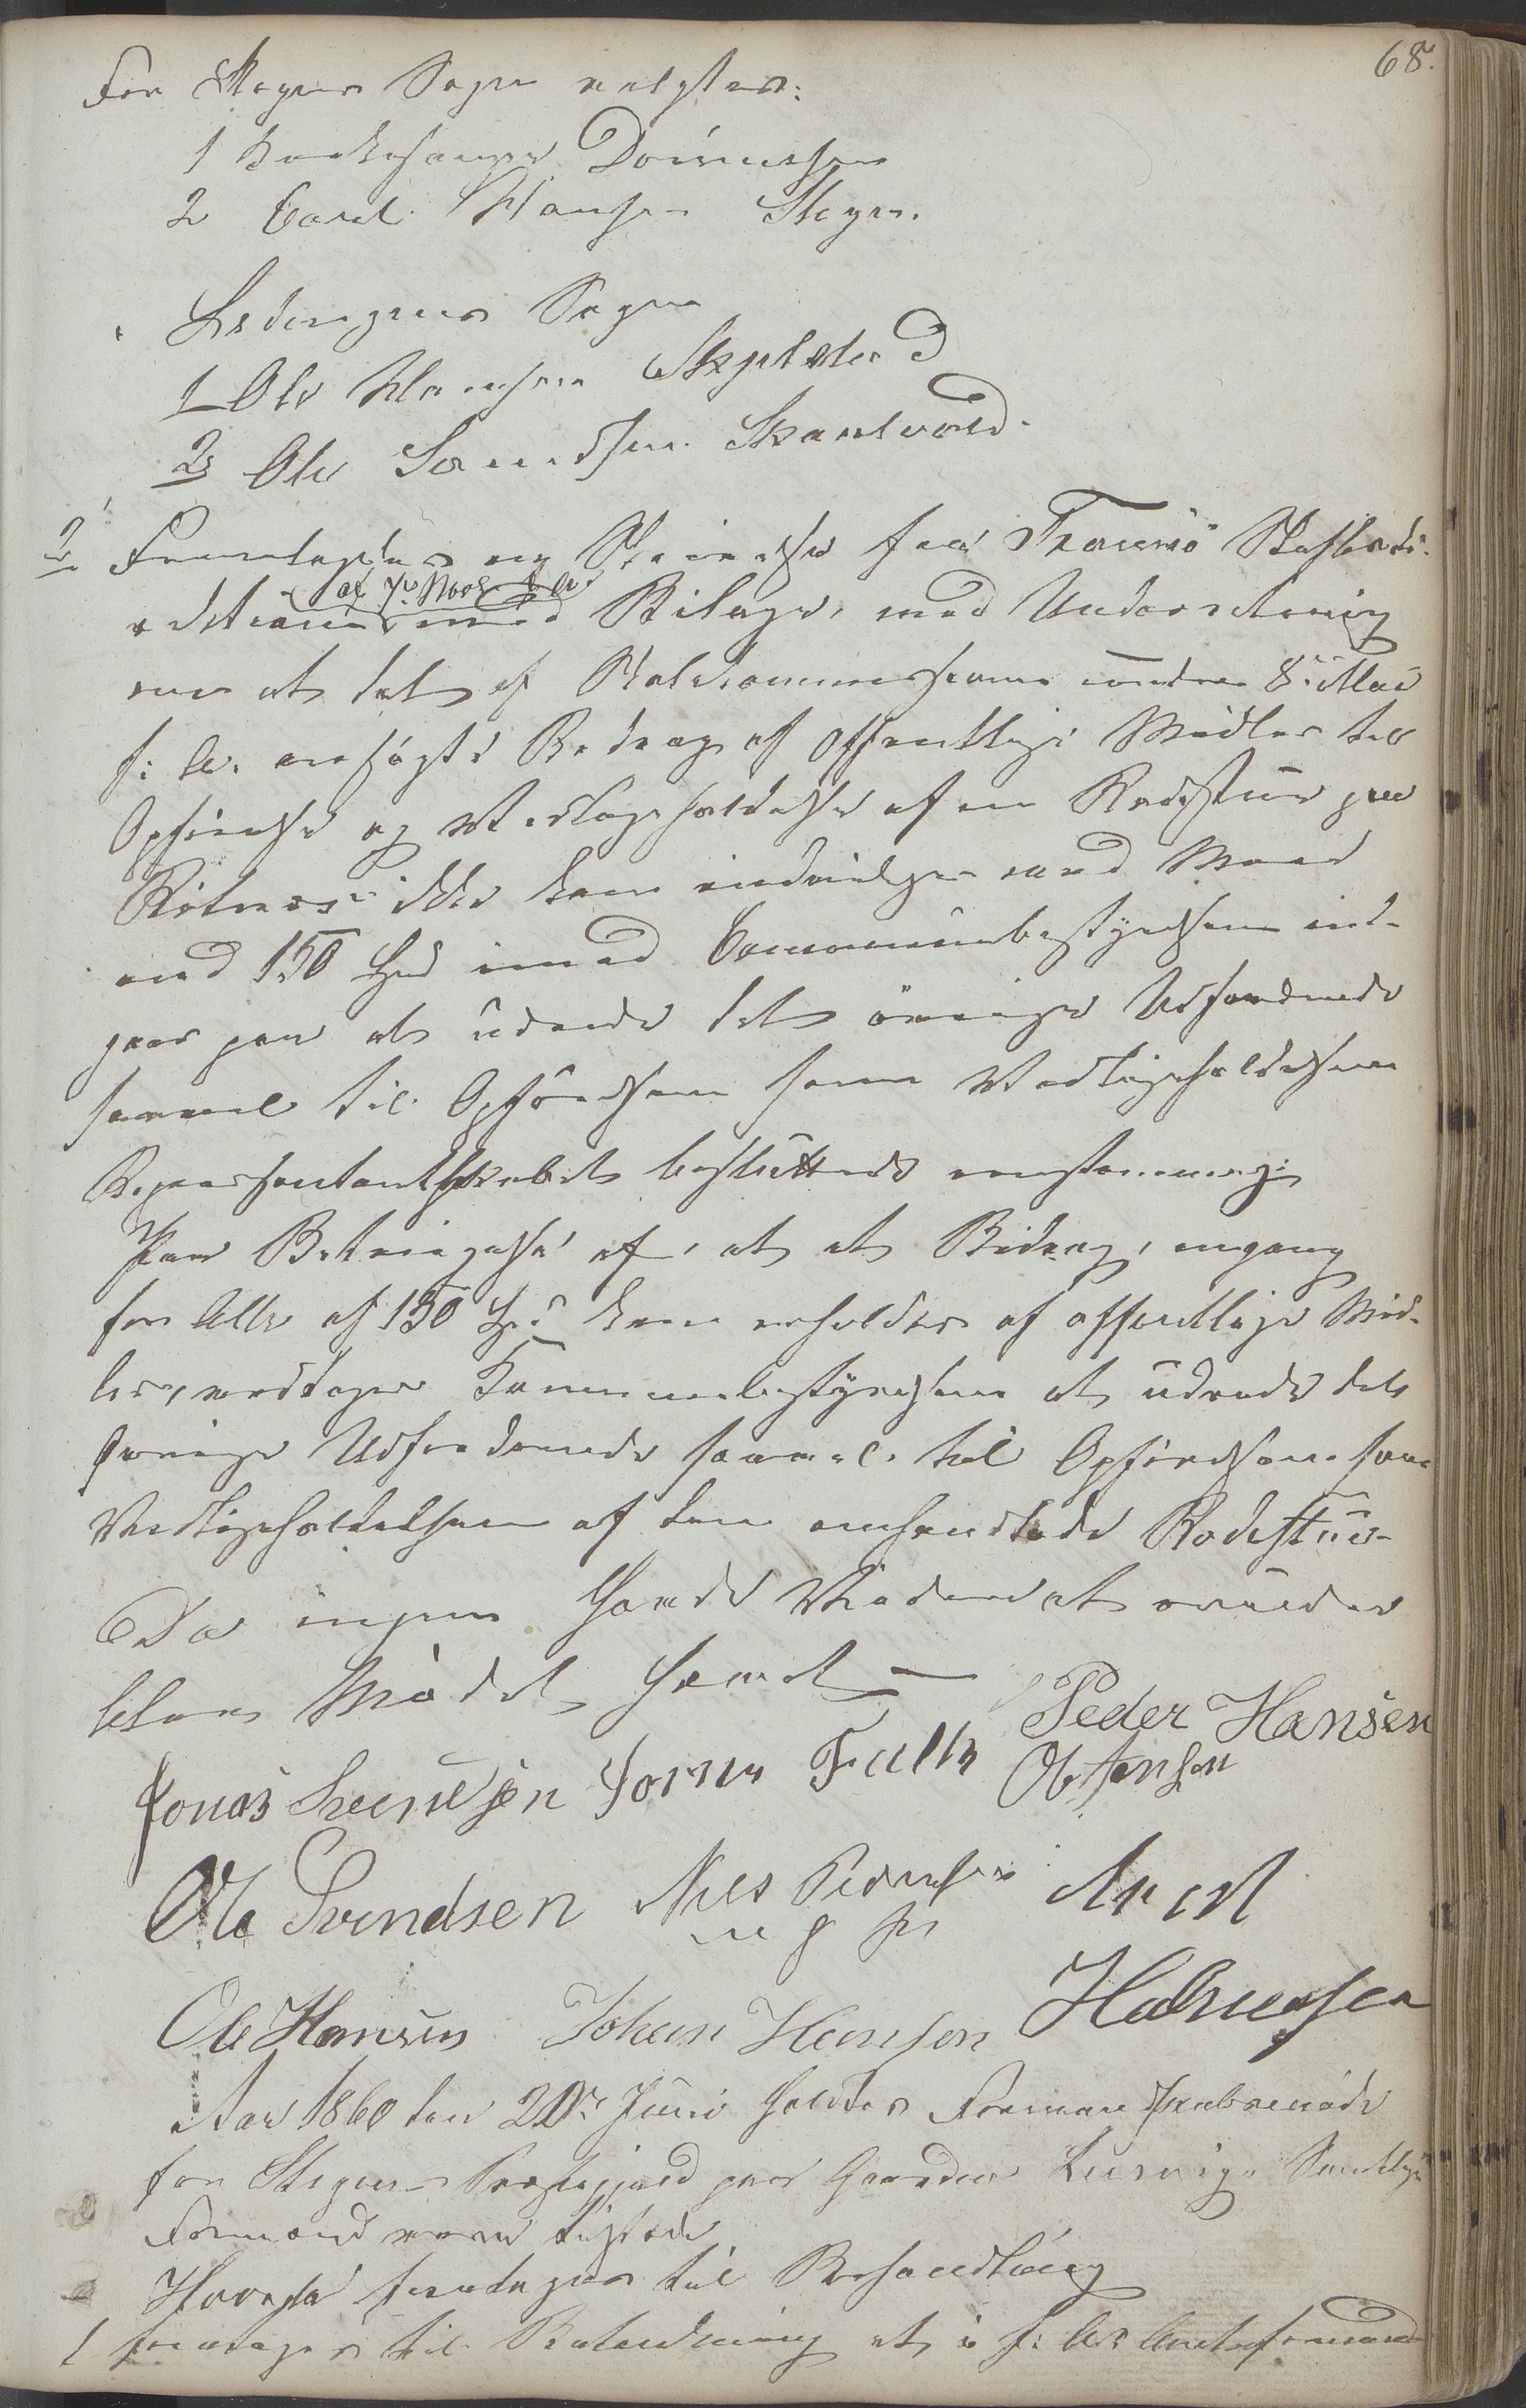 68.
For Stegens Sogn valgtes:
1 Kirkesanger Dorinussen
2 Carel Hansen Stegen.
Lødingens Sogn
1 Ole Hansen
2 Ole Svendsen Skarlvold.
2, Fremlagdes en Skrivelse fra Tromsö Stiftsdi-
rektion med Bilage, med Underretning
om at det af Skolecommissionen under 8de Mai
f. A. ansøgte Bidrag af Offentlige Midler til
Opførelse og Vedligeholdelse af en Rodestue paa
ikke kan indvilges med Mere
end 150 Spd imod Communebestyrelsen ind-
gaar paa at udrede det øvrige Udfordrende
saavel til Opförelsen som Vedligeholdelsen
Repræsentantskabet besluttede eenstemmig
Paa Betingelse af, at et Bidrag, engang
for Alle af 150 Spd kan erholdes af offentlige Mid-
ler, vedtager Kommunebestyrelsen at udrede det
øvrige Udfordrende saavel til Opførelsen som
Vedligeholdelsen af den omhandlede Rodestue
Da ingen Havde Videre at
blev Mödet Hævet —
Peder Hansen
Jonas Svendsen Jonas Falch Ol Jensen
Ole Svendsen Nils Pedersen Arnt
m f P
Ole Hansen Johan Hansen Halvorsen
Aar 1860 den 20de Juni holdtes Formandskabsmøde
for Stegens Præstegjeld paa Gaarden Leervig. Samtlige
Formænd vare tilstæde
Hvorpaa foretages til Behandling
1 foretages til Behandling et i f. A.